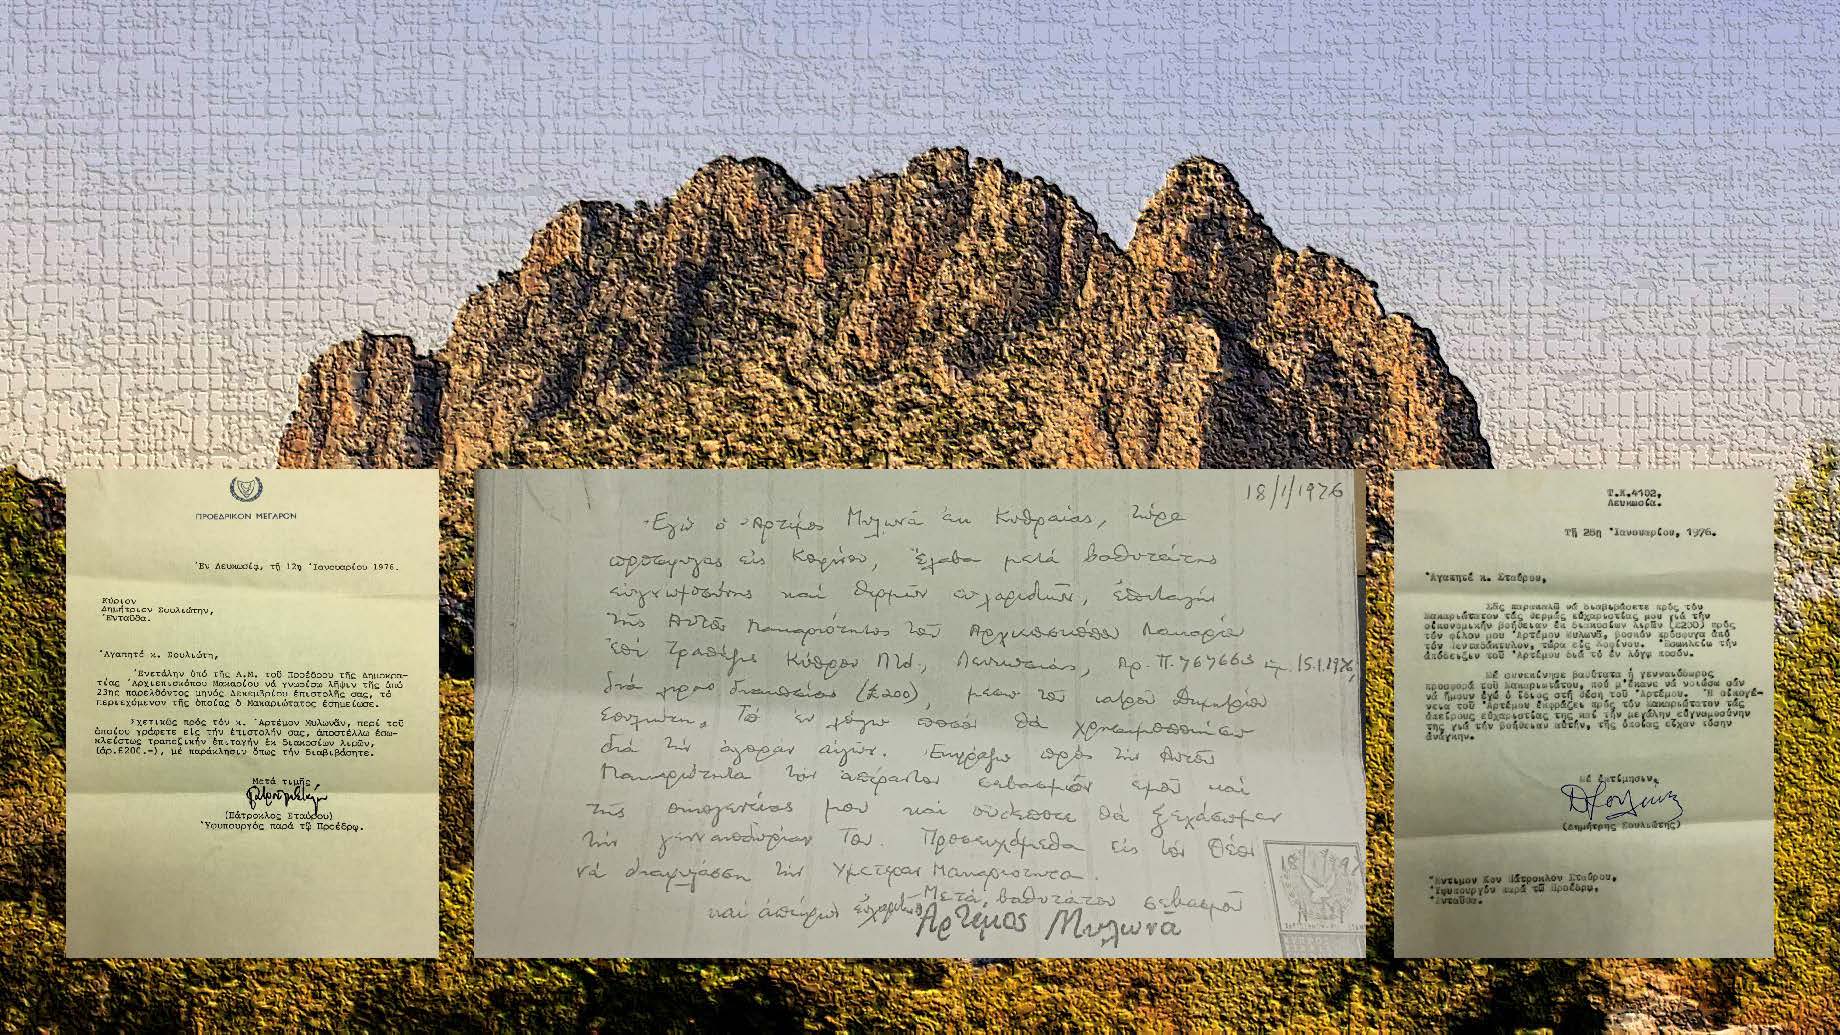 ΠΡΟΕΔΡΙΚΟΝ ΜΕΓΑΡΟΝ
Ἐν Λευκωσίᾳ, τῇ 12ῃ Ἰανουαρίου 1976.
Κύριον
Δημήτριον Σουλιώτην,
Ἐνταῦθα.
Ἀγαπητέ κ. Σουλιώτη,
Ἐνετάλην ὑπό τῆς Α.Μ. τοῦ Προέδρου τῆς Δημοκρα-
τίας Ἀρχιεπισκόπου Μακαρίου νά γνωρίσω λῆψιν τῆς ἀπό
23ης παρελθόντος μηνός Δεκεμβρίου ἐπιστολῆς σας, τό
περιεχόμενον τῆς ὁποίας ὁ Μακαριώτατος ἐσημείωσε.
Σχετικῶς πρός τόν κ. Ἀρτέμον Μυλωνᾶν, περί τοῦ
ὁποίου γράφετε εἰς τήν ἐπιστολήν σας, ἀποστέλλω ἐσω-
κλείστως τραπεζικήν ἐπιταγήν ἐκ διακοσίων λιρῶν,
(ἀρ.£200.-), μέ παράκλησιν ὅπως τήν διαβιβάσητε.
Μετά τιμῆς
(Πάτροκλος Σταύρου)
Ὑφυπουργός παρά τῷ Προέδρῳ.
18/1/1976
Ἐγώ ὁ Ἀρτέμος Μυλωνᾶ ἐκ Κυθραίας, τώρα
πρόσφυγας εἰς Κοφίνου, ἔλαβα μετά βαθυτάτης
εὐγνωμοσύνης καί θερμῶν εὐχαριστιῶν, ἐπιταγήν
τῆς Αὐτοῦ Μακαριότητος τοῦ Ἀρχιεπισκόπου Μακαρίου
ἐπί Τραπέζης Κύπρου Λτδ., Λευκωσίας, Αρ. Π. 767663 ἡμ. 15.1.1976,
διά ποσόν διακοσίων (£200), μέσω τοῦ ἰατροῦ Δημητρίου
Σουλιώτη. Τό ἐν λόγῳ ποσόν θά χρησιμοποιήσω
διά τήν ἀγοράν αἰγῶν. Ἐκφράζω πρός τήν Αὐτοῦ
Μακαριότητα τόν ἀπέραντον σεβασμόν ἐμοῦ καί
τῆς οἰκογενείας μου καί οὐδέποτε θά ξεχάσωμεν
τήν γενναιοδωρίαν Του. Προσευχόμεθα εἰς τόν Θεόν
νά διαφυλάσσῃ τήν Ὑμετέραν Μακαριότητα.
Μετά βαθυτάτου σεβασμοῦ
καί ἀπείρων εὐχαριστιῶν
Αρτέμος Μυλωνᾶ
Τ.Κ.4102,
Λευκωσία.
Τῇ 28ῃ Ἰανουαρίου, 1976.
Ἀγαπητέ κ. Σταύρου,
Σᾶς παρακαλῶ νά διαβιβάσετε πρός τόν
Μακαριώτατον τάς θερμάς εὐχαριστίας μου γιά τήν
οἰκονομικήν βοήθειαν ἐκ διακοσίων λιρῶν (£200) πρός
τόν φίλον μου Ἀρτέμον Μυλωνᾶ, βοσκόν πρόσφυγα ἀπό
τόν Πενταδάκτυλον, τώρα εἰς Κοφίνου. Ἐσωκλείω τήν
ἀπόδειξιν τοῦ Ἀρτέμου διά τό ἐν λόγῳ ποσόν.
Μέ συνεκίνησε βαθύτατα ἡ γενναιόδωρος
προσφορά τοῦ Μακαριωτάτου, πού μ'ἔκανε νά νοιώσω σάν
νά ἤμουν ἐγώ ὁ ἴδιος στή θέση τοῦ Ἀρτέμου. Ἡ οἰκογέ-
νεια τοῦ Ἀρτέμου ἐκφράζει πρός τόν Μακαριώτατον τάς
ἀπείρους εὐχαριστίας της καί τήν μεγάλην εὐγνωμοσύνην
της γιά τήν βοήθειαν αὐτήν, τῆς ὁποίας εἶχαν τόσην
ἀνάγκην.
Μέ ἐκτίμησιν,
(Δημήτρης Σουλιώτης)
Ἔντιμον Κον Πάτροκλον Σταύρου,
Ὑφυπουργόν παρά τῷ Προέδρῳ,
Ἐνταῦθα.